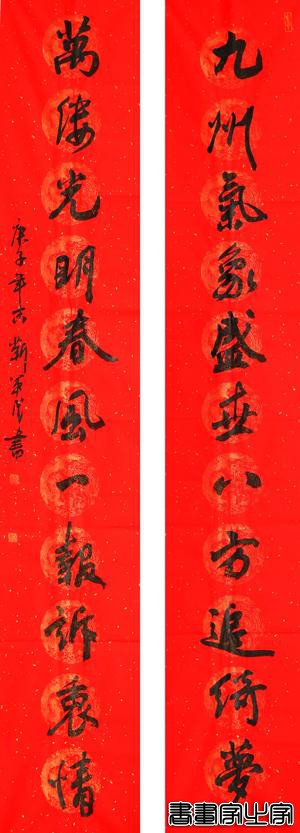 九州氣象盛世八方追綺夢
萬縷光明春風一報訴衷情
庚子年
書
書畫家之家